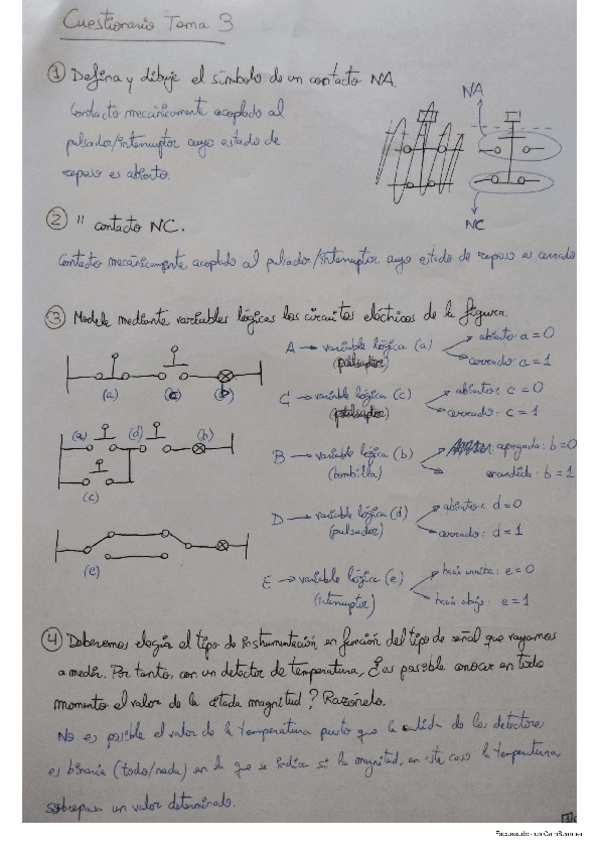 Cuestionario Tema 3
① Defina y dibuje el símbolo de un contacto NA.
Contacto mecánicamente acoplado al
pulsador/interruptor cuyo estado de
reposo es abierto.
NA
NC
② " contacto NC.
Contacto mecánicamente acoplado al pulsador/interruptor cuyo estado de reposo es cerrado
③ Modele mediante variables lógicas los circuitos eléctricos de la figura.
(a) (c) (b)
(a) (d) (b)
(c)
(e)
A → variable lógica (a)
(pulsador)
abierto: a = 0
cerrado: a = 1
C → variable lógica (c)
(pulsador)
abierto: c = 0
cerrado: c = 1
B → variable lógica (b)
(bombilla)
apagada: b = 0
encendida: b = 1
D → variable lógica (d)
(pulsador)
abierto: d = 0
cerrado: d = 1
E → variable lógica (e)
(interruptor)
hacia arriba: e = 0
hacia abajo: e = 1
④ Deberemos elegir el tipo de instrumentación, en función del tipo de señal que vayamos
a medir. Por tanto, con un detector de temperatura, ¿es posible conocer en todo
momento el valor de la citada magnitud? Razónelo.
No es posible el valor de la temperatura puesto que la salida de los detectores
es binaria (todo/nada) en la que se indica si la magnitud, en este caso la temperatura,
sobrepasa un valor determinado.
Escaneado con CamScanner